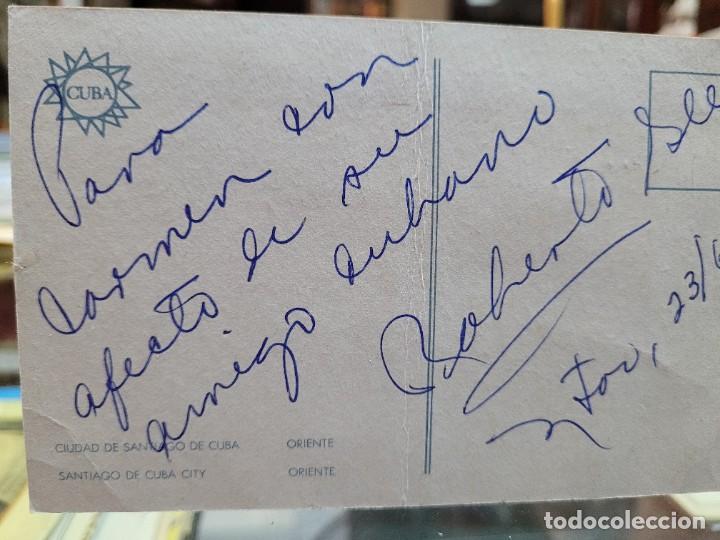 CUBA
Para
Carmen con
afecto de su
amigo cubano
Roberto
23/
CIUDAD DE SANTIAGO DE CUBA ORIENTE
SANTIAGO DE CUBA CITY ORIENTE
todocoleccion.net